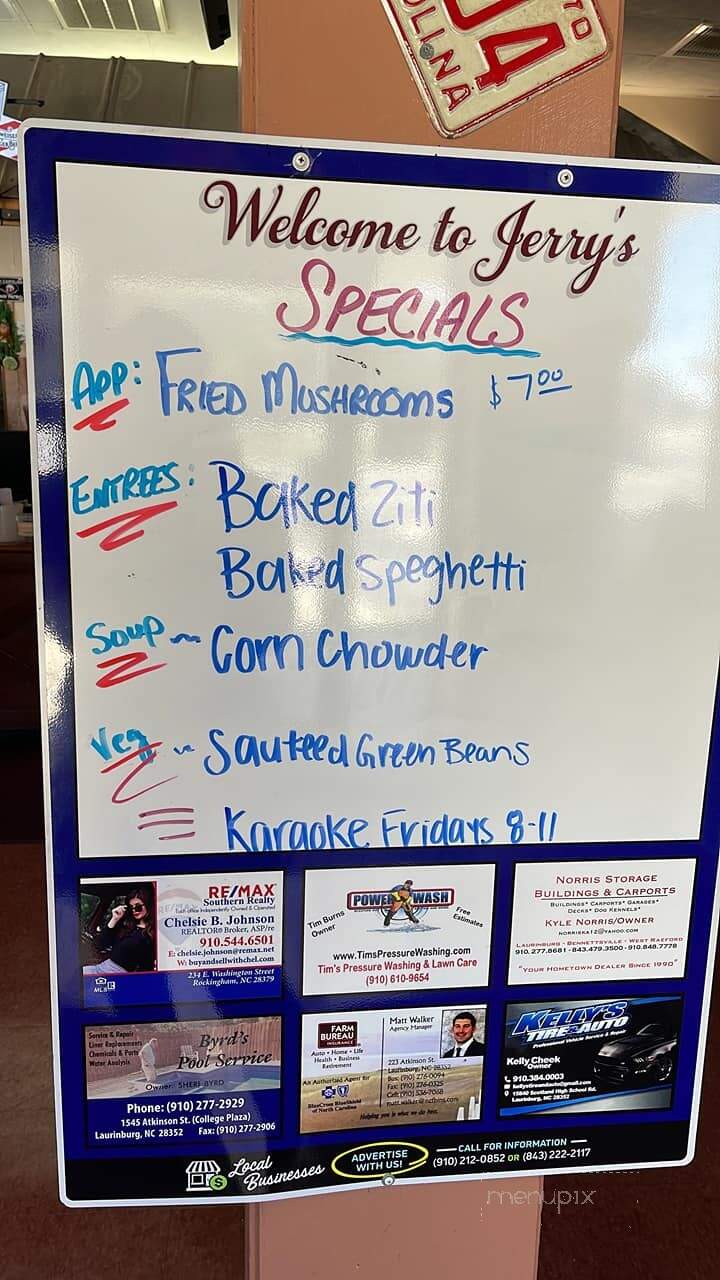 OLINA
04
70
Welcome to Jerry's
SPECIALS
APP: FRIED MUSHROOMS $7.00
ENTREES: Baked Ziti
Baked Speghetti
Soup ~ Corn Chowder
Veg ~ Sauteed Green Beans
Karaoke Fridays 8-11
RE/MAX
Southern Realty
Each office Independently Owned & Operated
Chelsie B. Johnson
REALTOR® Broker, ASP/re
910.544.6501
E: chelsie.johnson@remax.net
W: buyandsellwithchel.com
234 E. Washington Street
Rockingham, NC 28379
MLS
POWER WASH
Tim Burns
Owner
Free
Estimates
www.TimsPressureWashing.com
Tim's Pressure Washing & Lawn Care
(910) 610-9654
NORRIS STORAGE
BUILDINGS & CARPORTS
BUILDINGS* CARPORTS* GARAGES*
DECKS* DOG KENNELS*
KYLE NORRIS/OWNER
NORRISKA12@YAHOO.COM
LAURINBURG - BENNETTSVILLE - WEST RAEFORD
910.277.8681 - 843.479.3500 - 910.848.7778
"YOUR HOMETOWN DEALER SINCE 1990"
Service & Repair
Liner Replacements
Chemicals & Parts
Water Analysis
Byrd's
Pool Service
Owner: SHERI BYRD
Phone: (910) 277-2929
1545 Atkinson St. (College Plaza)
Laurinburg, NC 28352 Fax: (910) 277-2906
FARM
BUREAU
INSURANCE
Auto • Home • Life
Health • Business
Retirement
An Authorized Agent for
BlueCross BlueShield
of North Carolina
Matt Walker
Agency Manager
223 Atkinson St.
Laurinburg, NC 28352
Bus: (910) 276-0094
Fax: (910) 276-0325
Cell: (910) 536-7068
matt.walker@ncfbins.com
Helping you is what we do best.
KELLY'S
TIRE & AUTO
Professional Vehicle Service & Repair
Kelly Cheek
Owner
910.384.0003
kellystireandauto@gmail.com
15840 Scotland High School Rd.
Laurinburg, NC 28352
Local
Businesses
ADVERTISE
WITH US!
CALL FOR INFORMATION
(910) 212-0852 OR (843) 222-2117
menupix